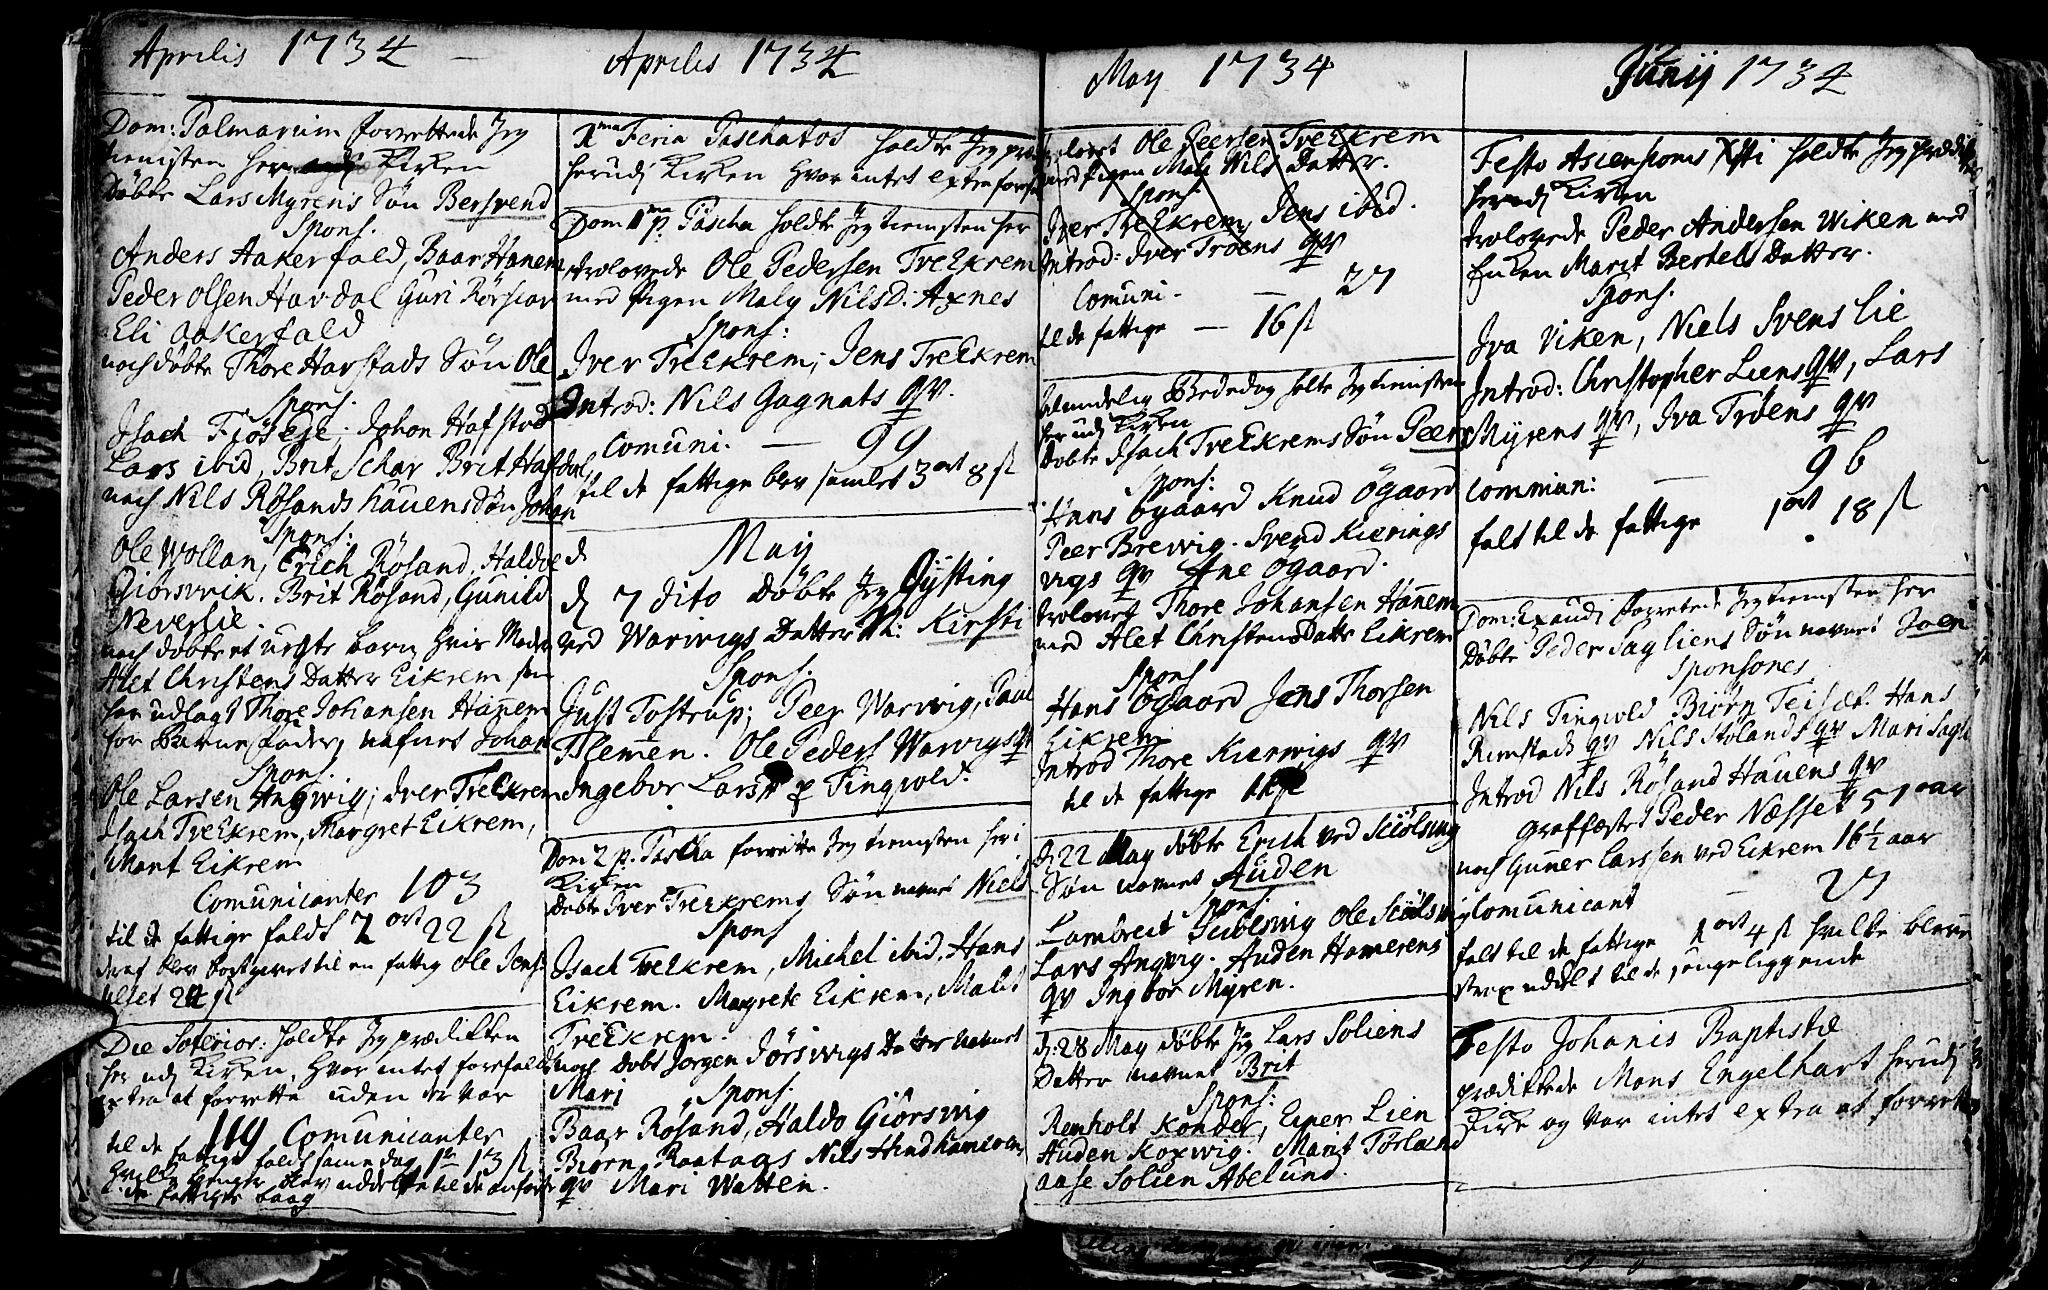 Aprilis 1734
Dom: Palmarum forrettede Jeg
tienisten her Kirken
Døbte Lars Myrens Søn Bersvend
Spons.
Anders Aakerfald, Baar Hanem
Peder Olsen Havdal Guri Rørstar
Eli Aakerfald
noch døbte Thore Harstads Søn Ole
Spons.
Isach Fiöseje, Johan Hafstad
Lars ibid, Brit Schar Brit Hafdal,
noch Nils Røsands Hauen Søn Johan
Spons:
Ole Wollan, Erich Røsand, Haldo
Giörsvik. Brit Røsand, Gunild
Neverlie.
noch døbte et uegte barn hvis Moder
Alet Christens Datter Eikrem som
har udlagt Thore Johansen Hanem
for Barnefader, nafnet Johan
Spons.
Ole Larsen Angwig; Iver TreEkrem
Isach TreEkrem, Margret Eikrem,
Marit Eikrem
Comunicanter 103
til de fattige faldt 2 ort 22 sl
deraf blev bortgivet til en fattig Ole Jens
24 sl
Die Soterior: holdte Jeg prædikken
her udj Kirken, hvor intet forefaldt
extra at forrette uden der var
119 Comunicanter
til de fattige faldt same dag 1 13 sl
hvilke penger blev uddelte til de
de fattiges
Aprilis 1734
1ma Feria Paschatos holdte Jeg
herudj Kirken hvor intet extra
Dom 1ma p. Pascha holdte Jeg tienisten her
trolovede Ole Pedersen TreEkrem
med Pigen Maly Nils D: Axnes
Spons:
Iver TreEkrem; Jens TreEkrem
Introd: Nils Gagnats qv.
Comuni. — 99
til de fattige blev samlet 3 ort 8 sl
d May
d 7 dito døbte Jeg Oÿsting
ved Warwigs Datter N: Kirsti
Spons.
Just Tostrup; Peer Warwig, Paul
Flemmen. Ole Peders Warvigs qv
Ingebor Lars p Tingvold.
Dom 2 p. Pascha forrette Jeg tienisten her i
Kirken
Døbte Iver TreEkrems Søn navnet Niels
Spons
Isach TreEkrem, Michel ibid, Hans
Eikrem. Magrete Eikrem, Malit
TreEkrem.
noch døbt Jørgen Jörsvigs Datter navnet
Mari Spons.
Baar Røsand, Haldo Giörsvig
Biørn Raatags Nils Hindhameren
qv Mari Watten.
May 1734
trolovet Ole Peersen TreEkrem
med Pigen Maly Nils Datter.
Spons.
Iver TreEkrem, Jens ibid.
Introd: Iver Trøens qv
Comuni. — 27
til de fattige — 16 sl
Almindelig Bededag holte Jeg tienisten
her udj Kirken
Døbte Isach TreEkrems Søn Peer
Spons:
Hans Øgaard Knud Øgaard
Peer Brevig. Svend Kiervigs
vigs qv Ane Øgaard.
trolovet Thore Johansen Hanem
med Alet Christens Datter Eikrem
Spons
Hans Øgaard Jens Thorsen
Eikrem
Introd Thore Kiervigs qv
til de fattige
d: 22 May døbte Erich ved Sciölsvig
Søn navnet Auden
Spons.
Lambreit Sciölsvig Ole Sciölsvig
Lars Angvig. Auden Hamerens
qv Ingbor Myren.
d: 28 May døbte Jeg Lars Soliens
Datter navnet Brit
Spons:
Remholt Konder, Einer Lien
Auden Koxwig. Marit Torland
aase Solien Abelund.
Junij 1734
Festo Ascensionis Xsti holdte Jeg prædik
herudj Kirken
trolovede Peder Andersen Wiken med
Enken Marit Bertels Datter.
Spons.
Iva Viken, Niels Svenslie
Introd: Christopher Liens qv, Lars
Myrens qv, Iva Trøens qv
Commun: — 96
falt til de fattige 1 ort 18 sl
Dom: Exaudi forretede Jeg tienisten her
Døbte Peder Sagliens Søn navnet Joen
Sponsores
Nils Tingvold Biørn Hans
Rimstads qv Nils Stolands qv Mari Sagli
Introd Nils Røsand Hauens qv
Graffæstet Peder Næsset 51 aar
noch Guner Larssen ved Eikrem 16½ aar
Comunicant — 27
falt til de fattige 1 ort 4 sl hvilke bleve
strax uddelt til de sengeliggende
Festo Johanis Baptistæ
prædikede Mons Engelhart herudj
Kirke og var intet extra at forrette